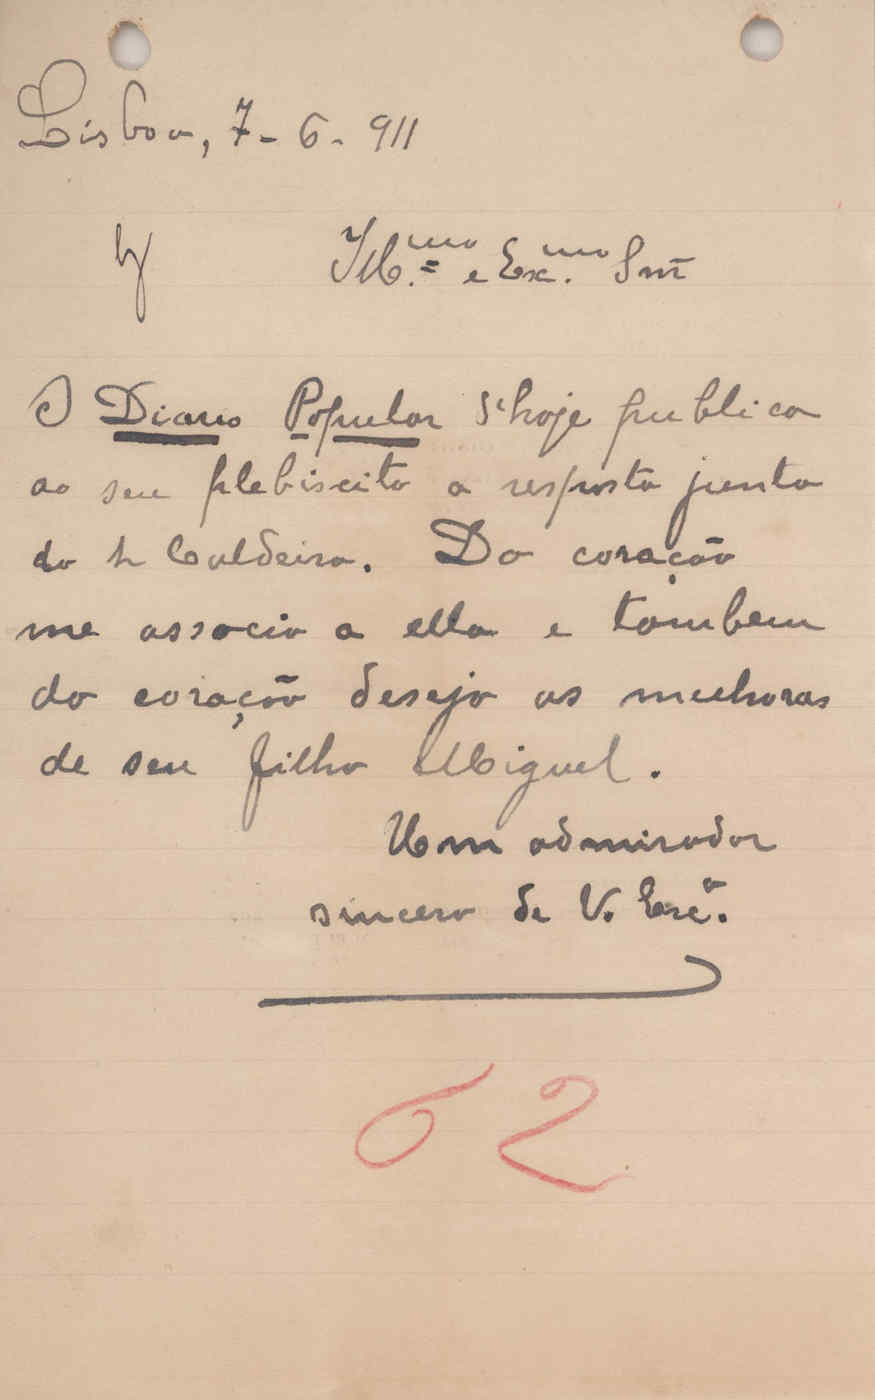 Lisboa, 7-6-911
Ill.mo e Exc.mo Snr
O Diario Popular d'hoje publica
ao seu plebiscito a resposta junta
do Sr Caldeira. Do coração
me associo a ella e tambem
do coração desejo as melhoras
de seu filho Miguel.
Um admirador
sincero de V. Exc.a
62